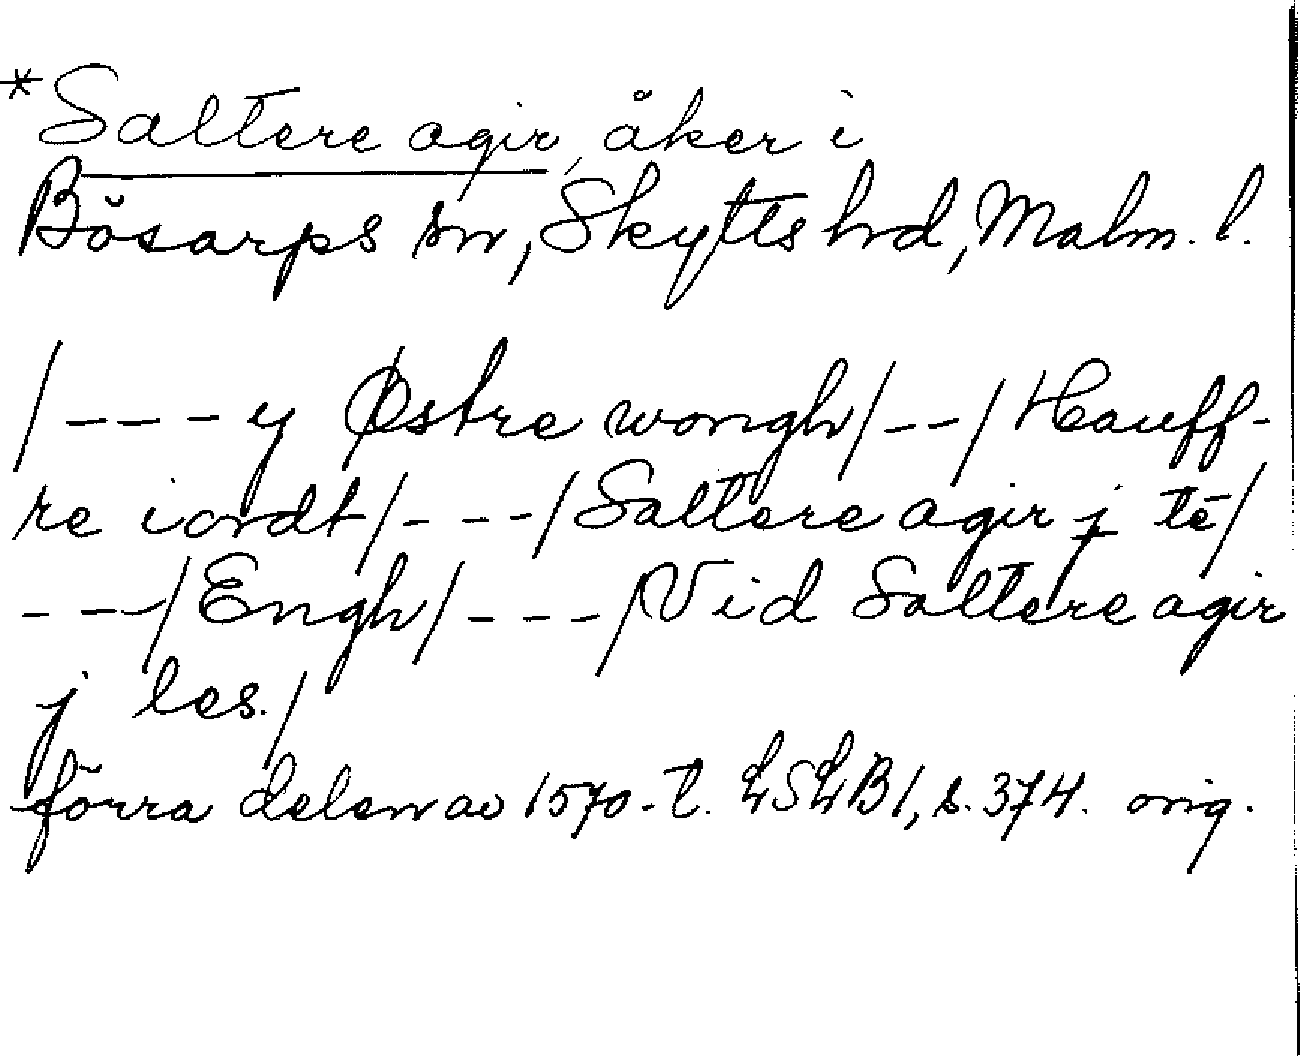 *Saltere agir, åker i
Bösarps sn, Skytts hd, Malm. l.
/---- y Østre wongh/--/Hauff-
re iordt/---/Saltere agir j tē/
---/Engh/---/Vid Saltere agir
j les./
förra delen av 1570-t. LSLB1, s. 374. orig.